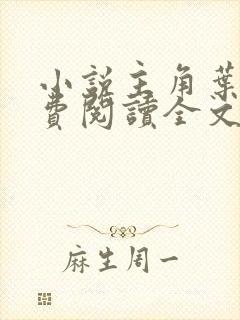 小說主角葉
費閱讀全文
麻生周一